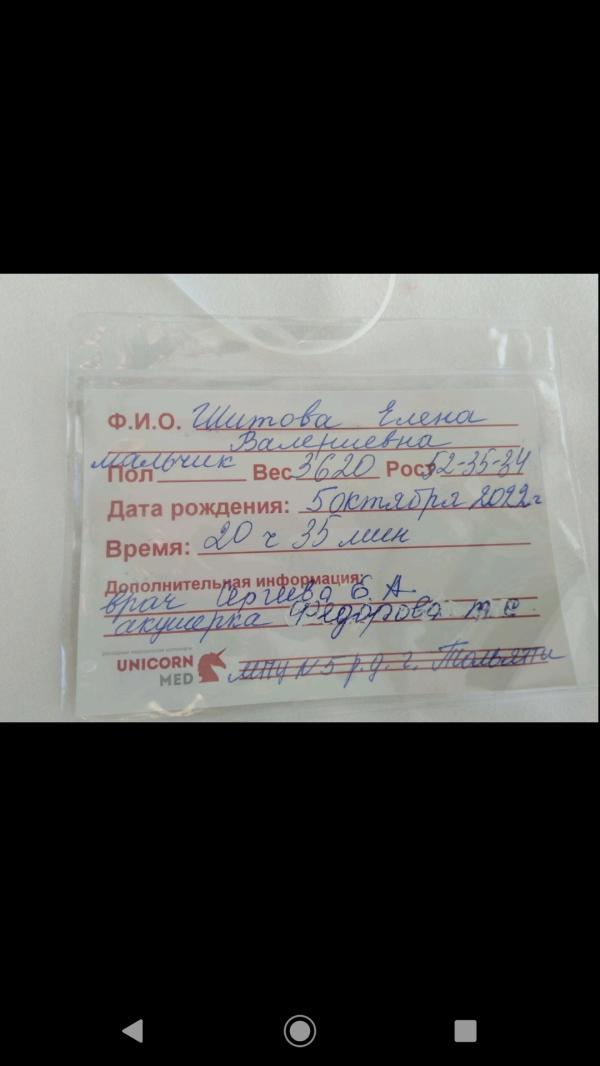 Ф.И.О. Шитова Елена
Валериевна
мальчик
Пол Вес 3620 Рост 52-35-34
Дата рождения: 5 октября 2022 г
Время: 20 ч 35 мин
Дополнительная информация:
врач Е. А
акушерка Федорова
UNICORN
MED
р.д. г. Тольятти